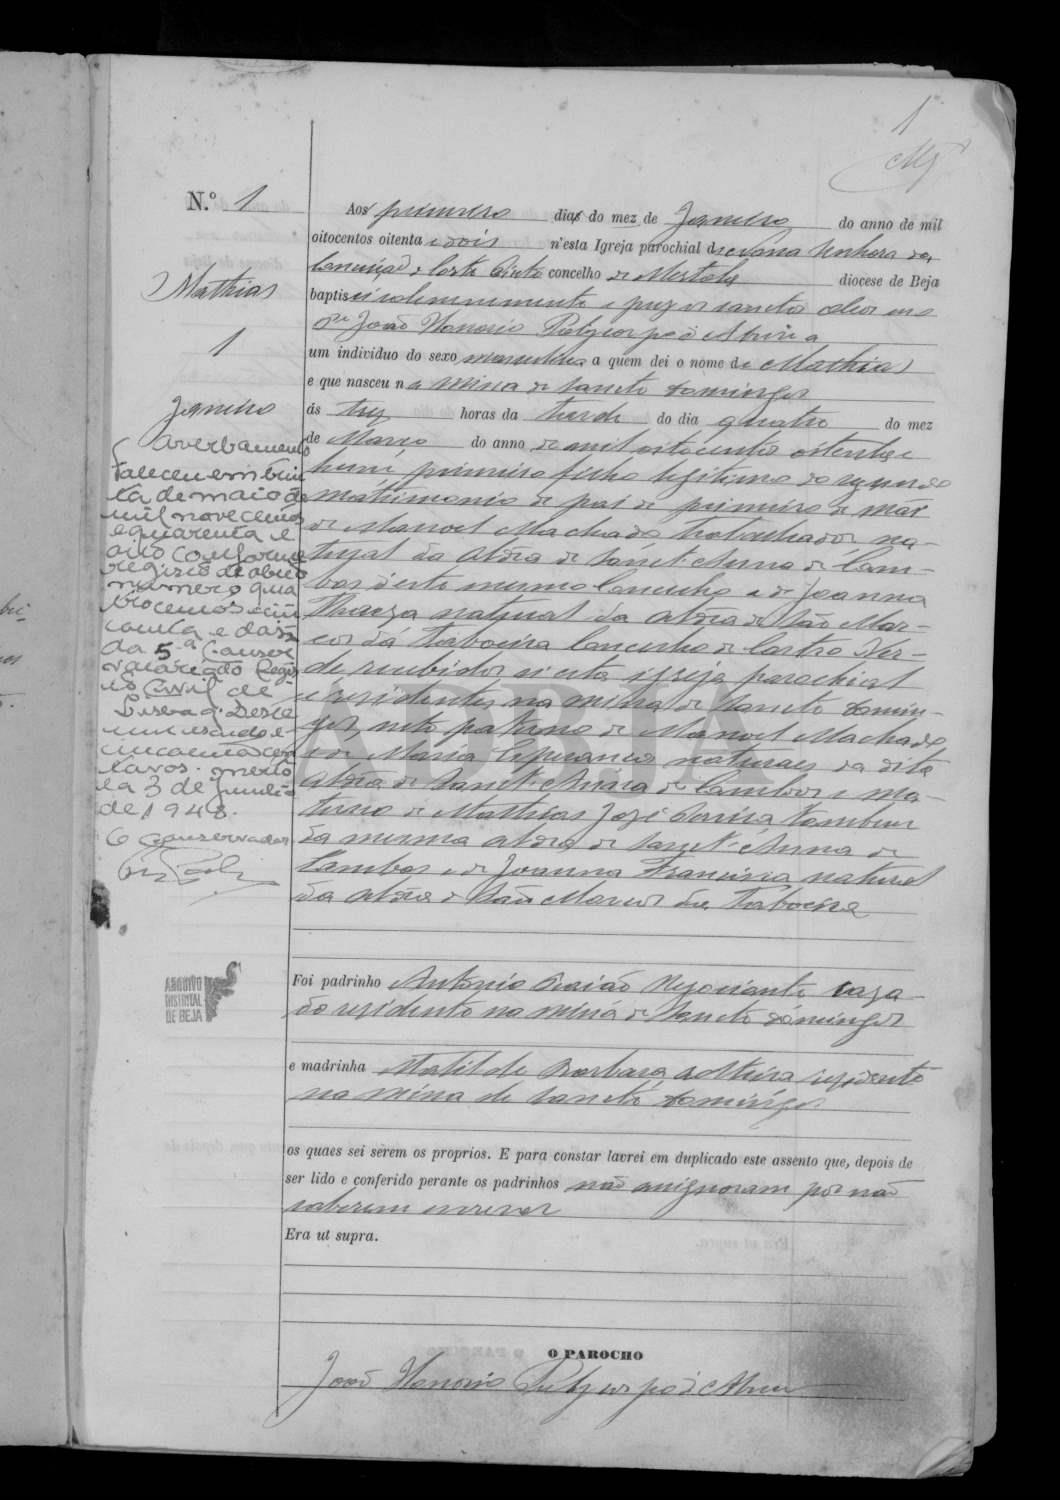 1
N.º 1
Mathias
1
Janeiro
Averbamento
Faleceu em trin
ta de maio de
mil novecentos
e quarenta e
oito conforme
registo de obito
numero qua
trocentos e cin
coenta e dois
da 5.ª Conser
vatoria do Regis
to Civil de
Lisboa. Deste
um escudo e
cincoenta cen
tavos. Mertola
3 de Junho
de 1948.
O Conservador
ARQUIVO
DISTRITAL
DE BEJA
Aos primeiro dias do mez de Janeiro do anno de mil
oitocentos oitenta e dois n'esta Igreja parochial de Nossa Senhora da
Conceição de Corte do Pinto concelho de Mertola diocese de Beja
baptisei solemnemente e puz os sanctos oleos eu o
João Honorio Polycarpo d'Abreu a
um individuo do sexo masculino a quem dei o nome de Mathias
e que nasceu na mina de Sancto Domingos
ás trez horas da tarde do dia quatro do mez
de Março do anno de mil oitocentos oitenta e
hum, primeiro filho legitimo do segundo
matrimonio de pai de primeiro de mãe
de Manoel Machado trabalhador na-
tural da aldea de Sanct'Anna de Cam-
bas d'este mesmo Concelho e de Joanna
Thereza natural da aldea de São Mar-
cos da Taboeira Concelho de Castro Ver-
de recebidos n'esta igreja parochial
e residentes na mina de Sancto Domin-
gos, neto paterno de Manoel Machado
e de Maria Esperança naturaes da dita
aldea de Sanct'Anna de Cambas e ma-
terno de Mathias José tambem
da mesma aldea de Sanct'Anna de
Cambas e de Joanna Francisca natural
da aldea de São Marcos da Taboeira
ADBJA
Foi padrinho Antonio Negociante caza-
do residente na mina de Sancto Domingos
e madrinha Matilde Barbara solteira rezidente
na mina de Sancto Domingos
os quaes sei serem os proprios. E para constar lavrei em duplicado este assento que, depois de
ser lido e conferido perante os padrinhos não assignaram por não
saberem escrever
Era ut supra.
O PAROCHO
João Honorio Polycarpo d'Abreu